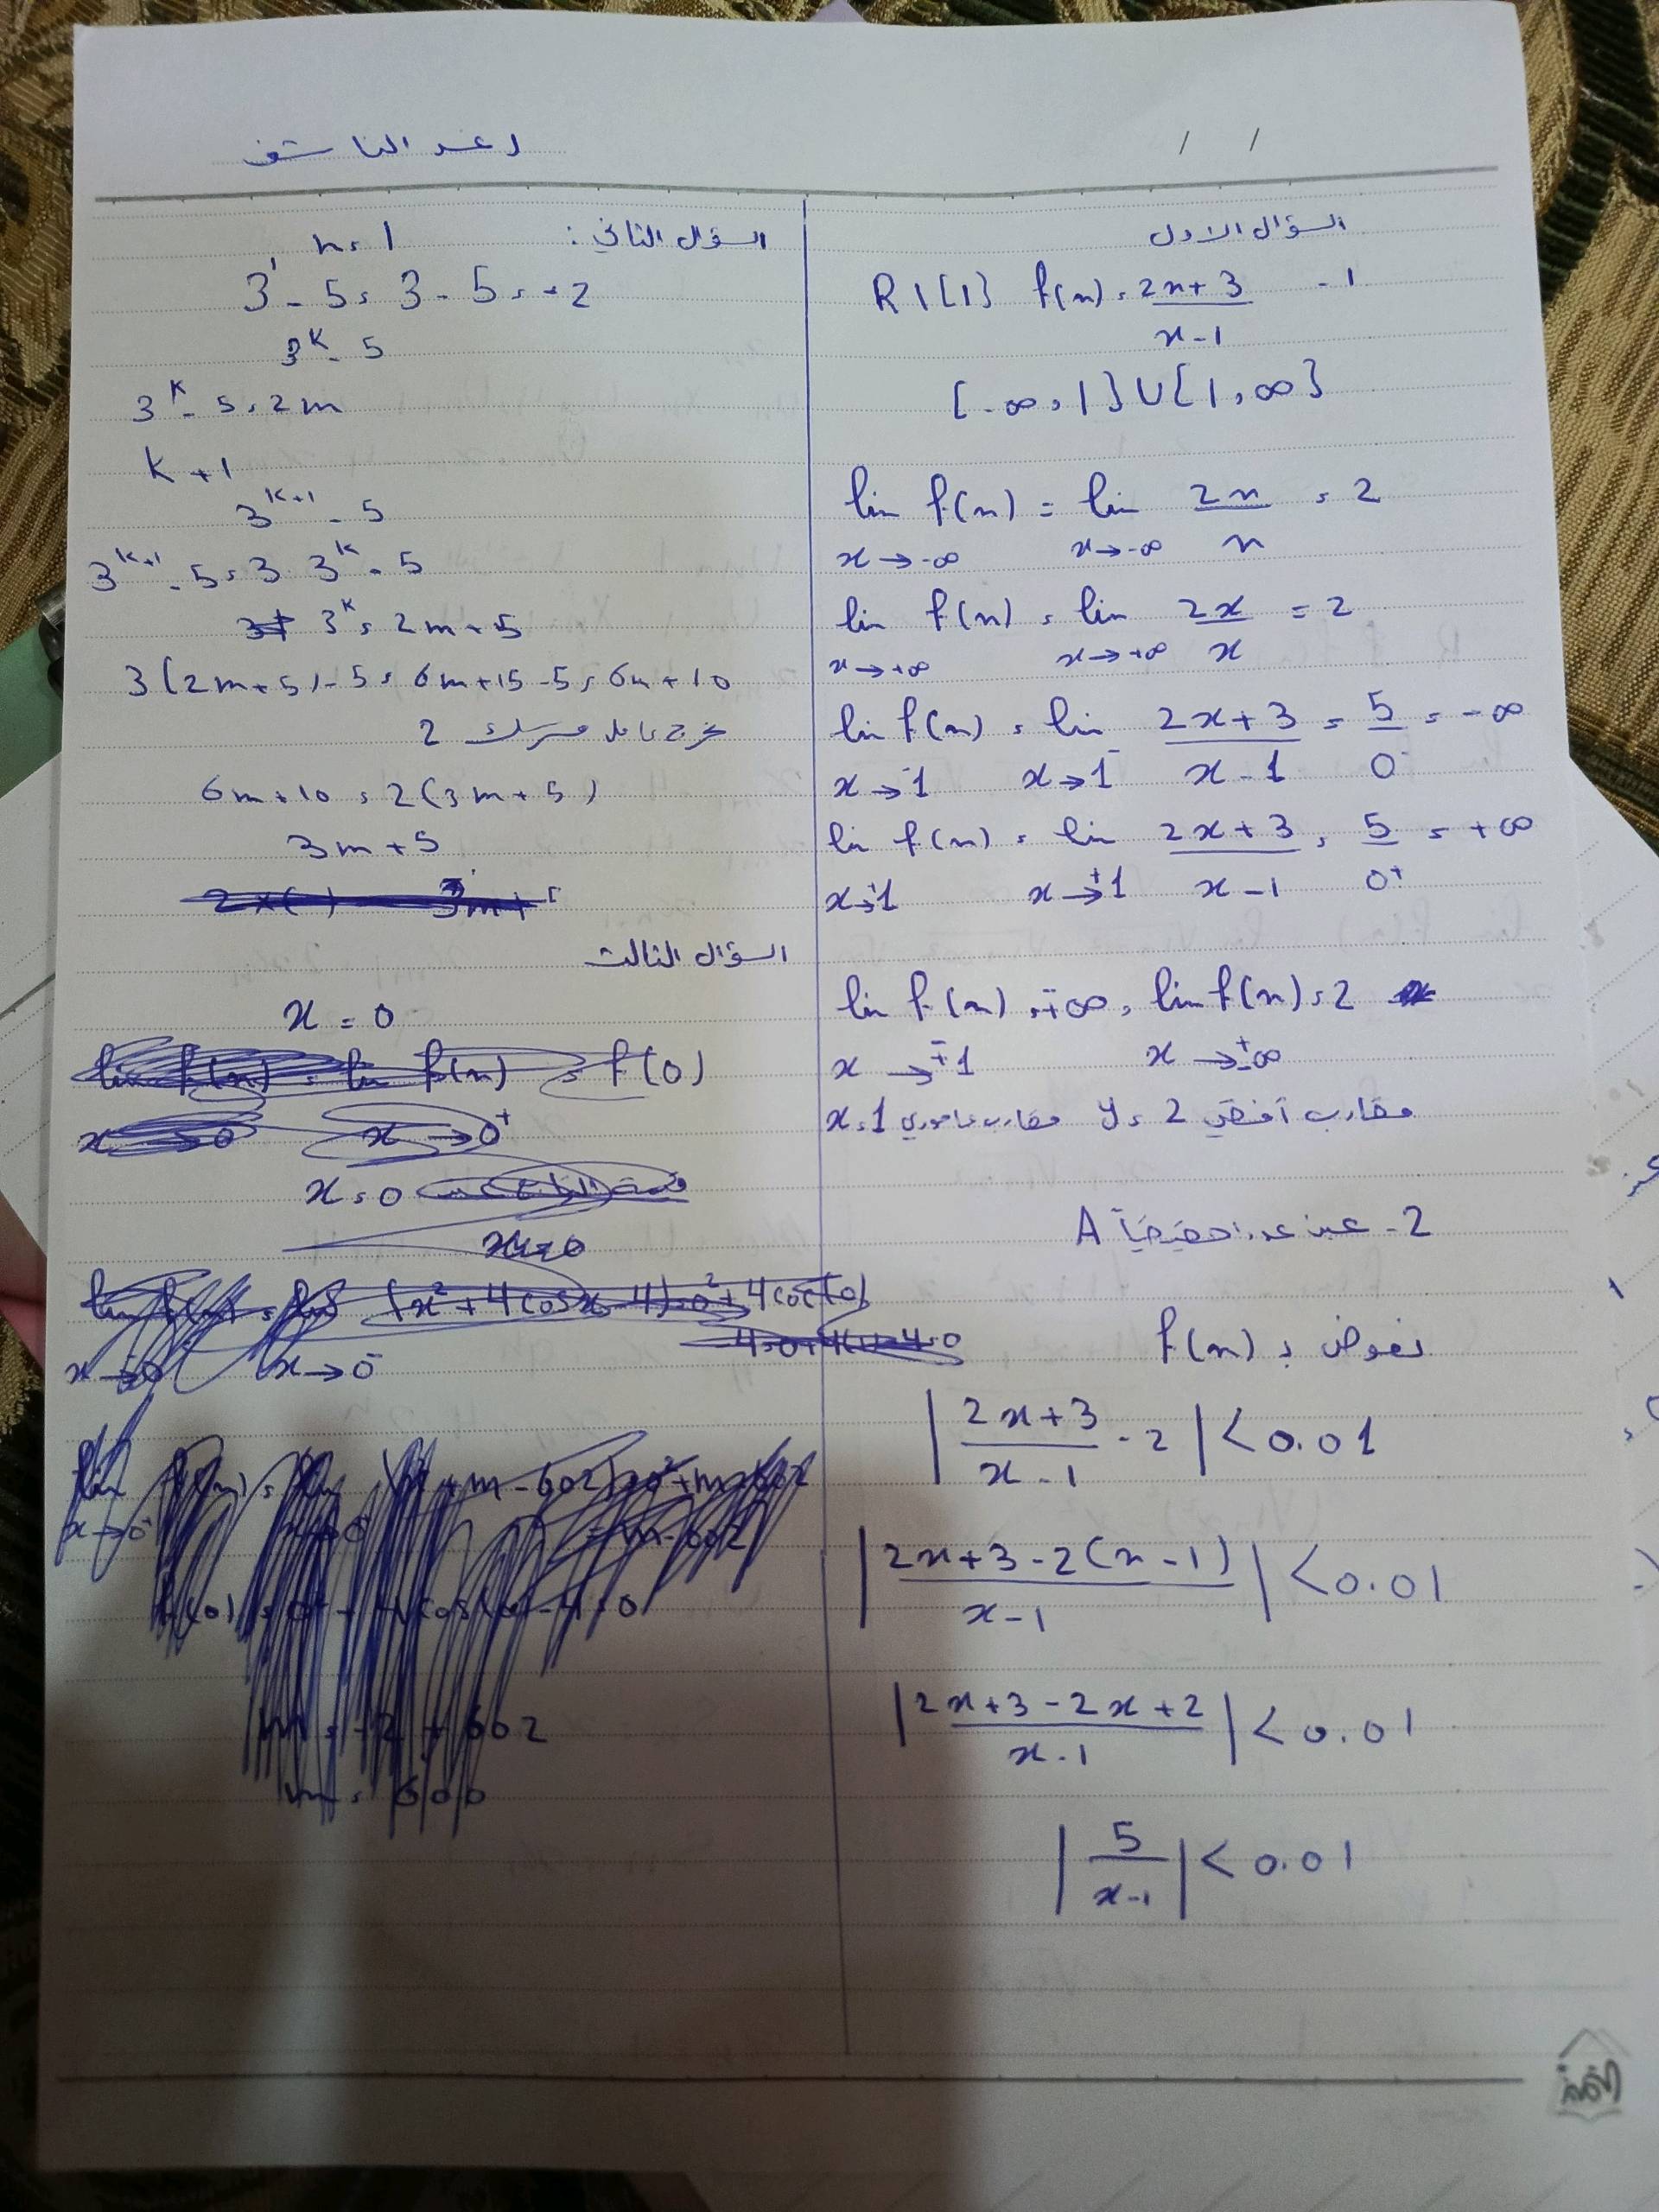 رغد الناشف
/ /
السؤال الاول
R \ {1} f(x) = \frac{2x+3}{x-1} -1
[-∞, 1} ∪ {1, ∞}
lim_{x→-∞} f(x) = lim_{x→-∞} \frac{2x}{x} = 2
lim_{x→+∞} f(x) = lim_{x→+∞} \frac{2x}{x} = 2
lim_{x→1^-} f(x) = lim_{x→1^-} \frac{2x+3}{x-1} = \frac{5}{0^-} = -∞
lim_{x→1^+} f(x) = lim_{x→1^+} \frac{2x+3}{x-1} = \frac{5}{0^+} = +∞
lim_{x→∓1} f(x) = ∓∞, lim_{x→±∞} f(x) = 2
مقارب أفقي y = 2 مقارب عامودي x = 1
2- عين عدد حقيقياً A
نعوض بـ f(x)
|\frac{2x+3}{x-1} - 2| < 0.01
|\frac{2x+3-2(x-1)}{x-1}| < 0.01
|\frac{2x+3-2x+2}{x-1}| < 0.01
|\frac{5}{x-1}| < 0.01
السؤال الثاني: n = 1
3^1 - 5 = 3 - 5 = -2
3^k - 5
3^k - 5 = 2m
k + 1
3^{k+1} - 5
3^{k+1} - 5 = 3 3^k - 5
3^k = 2m + 5
3(2m+5) - 5 = 6m + 15 - 5 = 6m + 10
نخرج عامل مشترك 2
6m + 10 = 2(3m + 5)
3m + 5
السؤال الثالث
x = 0
f(0)
x → 0^+
x = 0
x = 0
(x^2 + 4cosx - 4) = 0^2 + 4cos(0)
x → 0^-
m = -2 + 602
m = 600